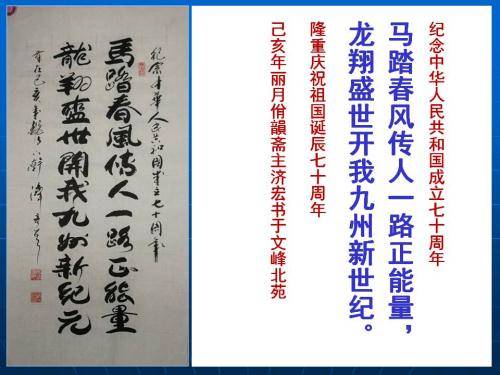 纪念中华人民共和国成立七十周年
马踏春风传人一路正能量，
龙翔盛世开我九州新世纪。
隆重庆祝祖国诞辰七十周年
己亥年丽月僧韻斋主济宏书于文峰北苑
紀念中華人民共和国成立七十周年
馬踏春風傳人一路正能量
龍翔盛世開我九州新紀元
己亥年